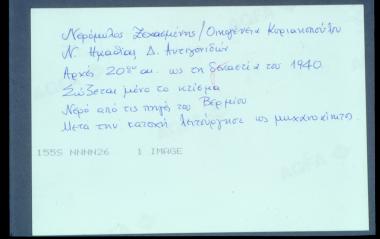 Νερόμυλος Ξεχασμένης/Οικογένεια Κυριακοπούλου
Ν. Ημαθίας Δ. Αντιγονιδών
Αρχές 20ου αι. ως τη δεκαετία του 1940
Σώζεται μόνο το κτίσμα
Νερό από τις πηγές του Βερμίου
Μετά την κατοχή λειτούργησε ως μηχανοκίνητος.
155S NNNN26 1 IMAGE